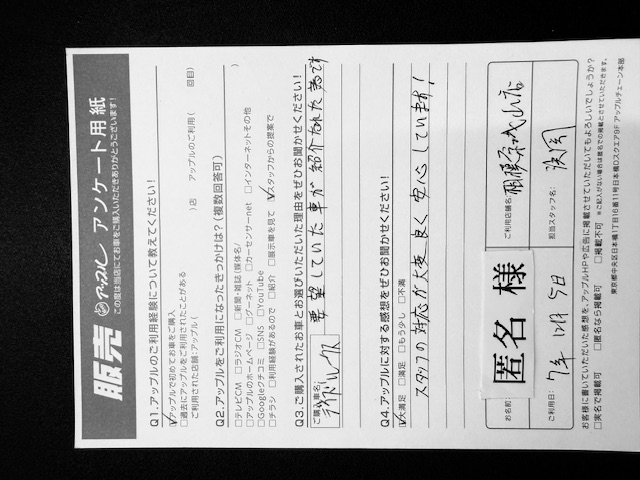 販売 アップル アンケート用紙
この度は当店にてお車をご購入いただきありがとうございます!
Q1.アップルのご利用経験について教えてください!
☑アップルで初めてお車をご購入
□過去にアップルをご利用されたことがある
ご利用された店舗:アップル( )店 アップルのご利用( 回目)
Q2.アップルをご利用になったきっかけは?(複数回答可)
□テレビCM □ラジオCM □新聞・雑誌(媒体名/ )
□アップルのホームページ □グーネット □カーセンサーnet □インターネットその他
□Googleクチコミ □SNS □YouTube
□チラシ □利用経験があるので □紹介 □展示車を見て ☑スタッフからの提案で
Q3.ご購入されたお車とお選びいただいた理由をぜひお聞かせください!
ご購入車名:
要望していた車が紹介された為です
Q4.アップルに対する感想をぜひお聞かせください!
☑大満足 □満足 □もう少し □不満
スタッフの対応が大変良く安心しています!
お名前: 匿名 様
ご利用店舗名:相模原
ご利用日: 7年 12月 5日
担当スタッフ名:
お客様に書いていただいた感想を、アップルHPや広告に掲載させていただいてもよろしいでしょうか?
□実名で掲載可 □匿名なら掲載可 □掲載不可 ※ご記入がない場合は匿名での掲載とさせていただきます。
東京都中央区日本橋1丁目16番11号日本橋Dスクエア9F アップルチェーン本部